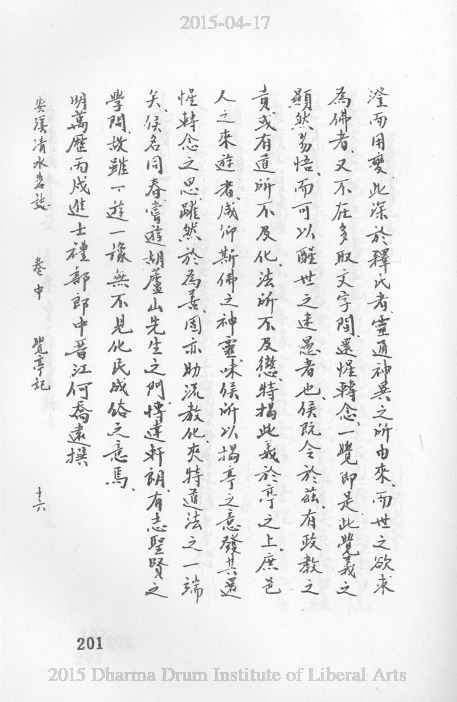 2015-04-17
澄而用變此深於釋氏者靈通神異之所由來而世之欲求
為佛者又不在多取文字間還惺轉念一覽即是此覺義之
顯然易悟而可以醒世之迷愚者也侯既令於茲有政教之
責或有道所不及化法所不及懲特揭此義於亭之上庶邑
人之來遊者咸仰斯佛之神靈味侯所以揭亭之意發其還
惺轉念之思躍然於為善固亦助流教化夾持道法之一端
矣侯名同春嘗遊胡廬山先生之門慱達軒朗有志聖賢之
學問故雖一遊一豫無不見化民成俗之意焉
明萬曆丙戌進士禮部郎中晉江何喬遠撰
安溪清水岩誌 卷中 覺亭記 十六
201
2015 Dharma Drum Institute of Liberal Arts